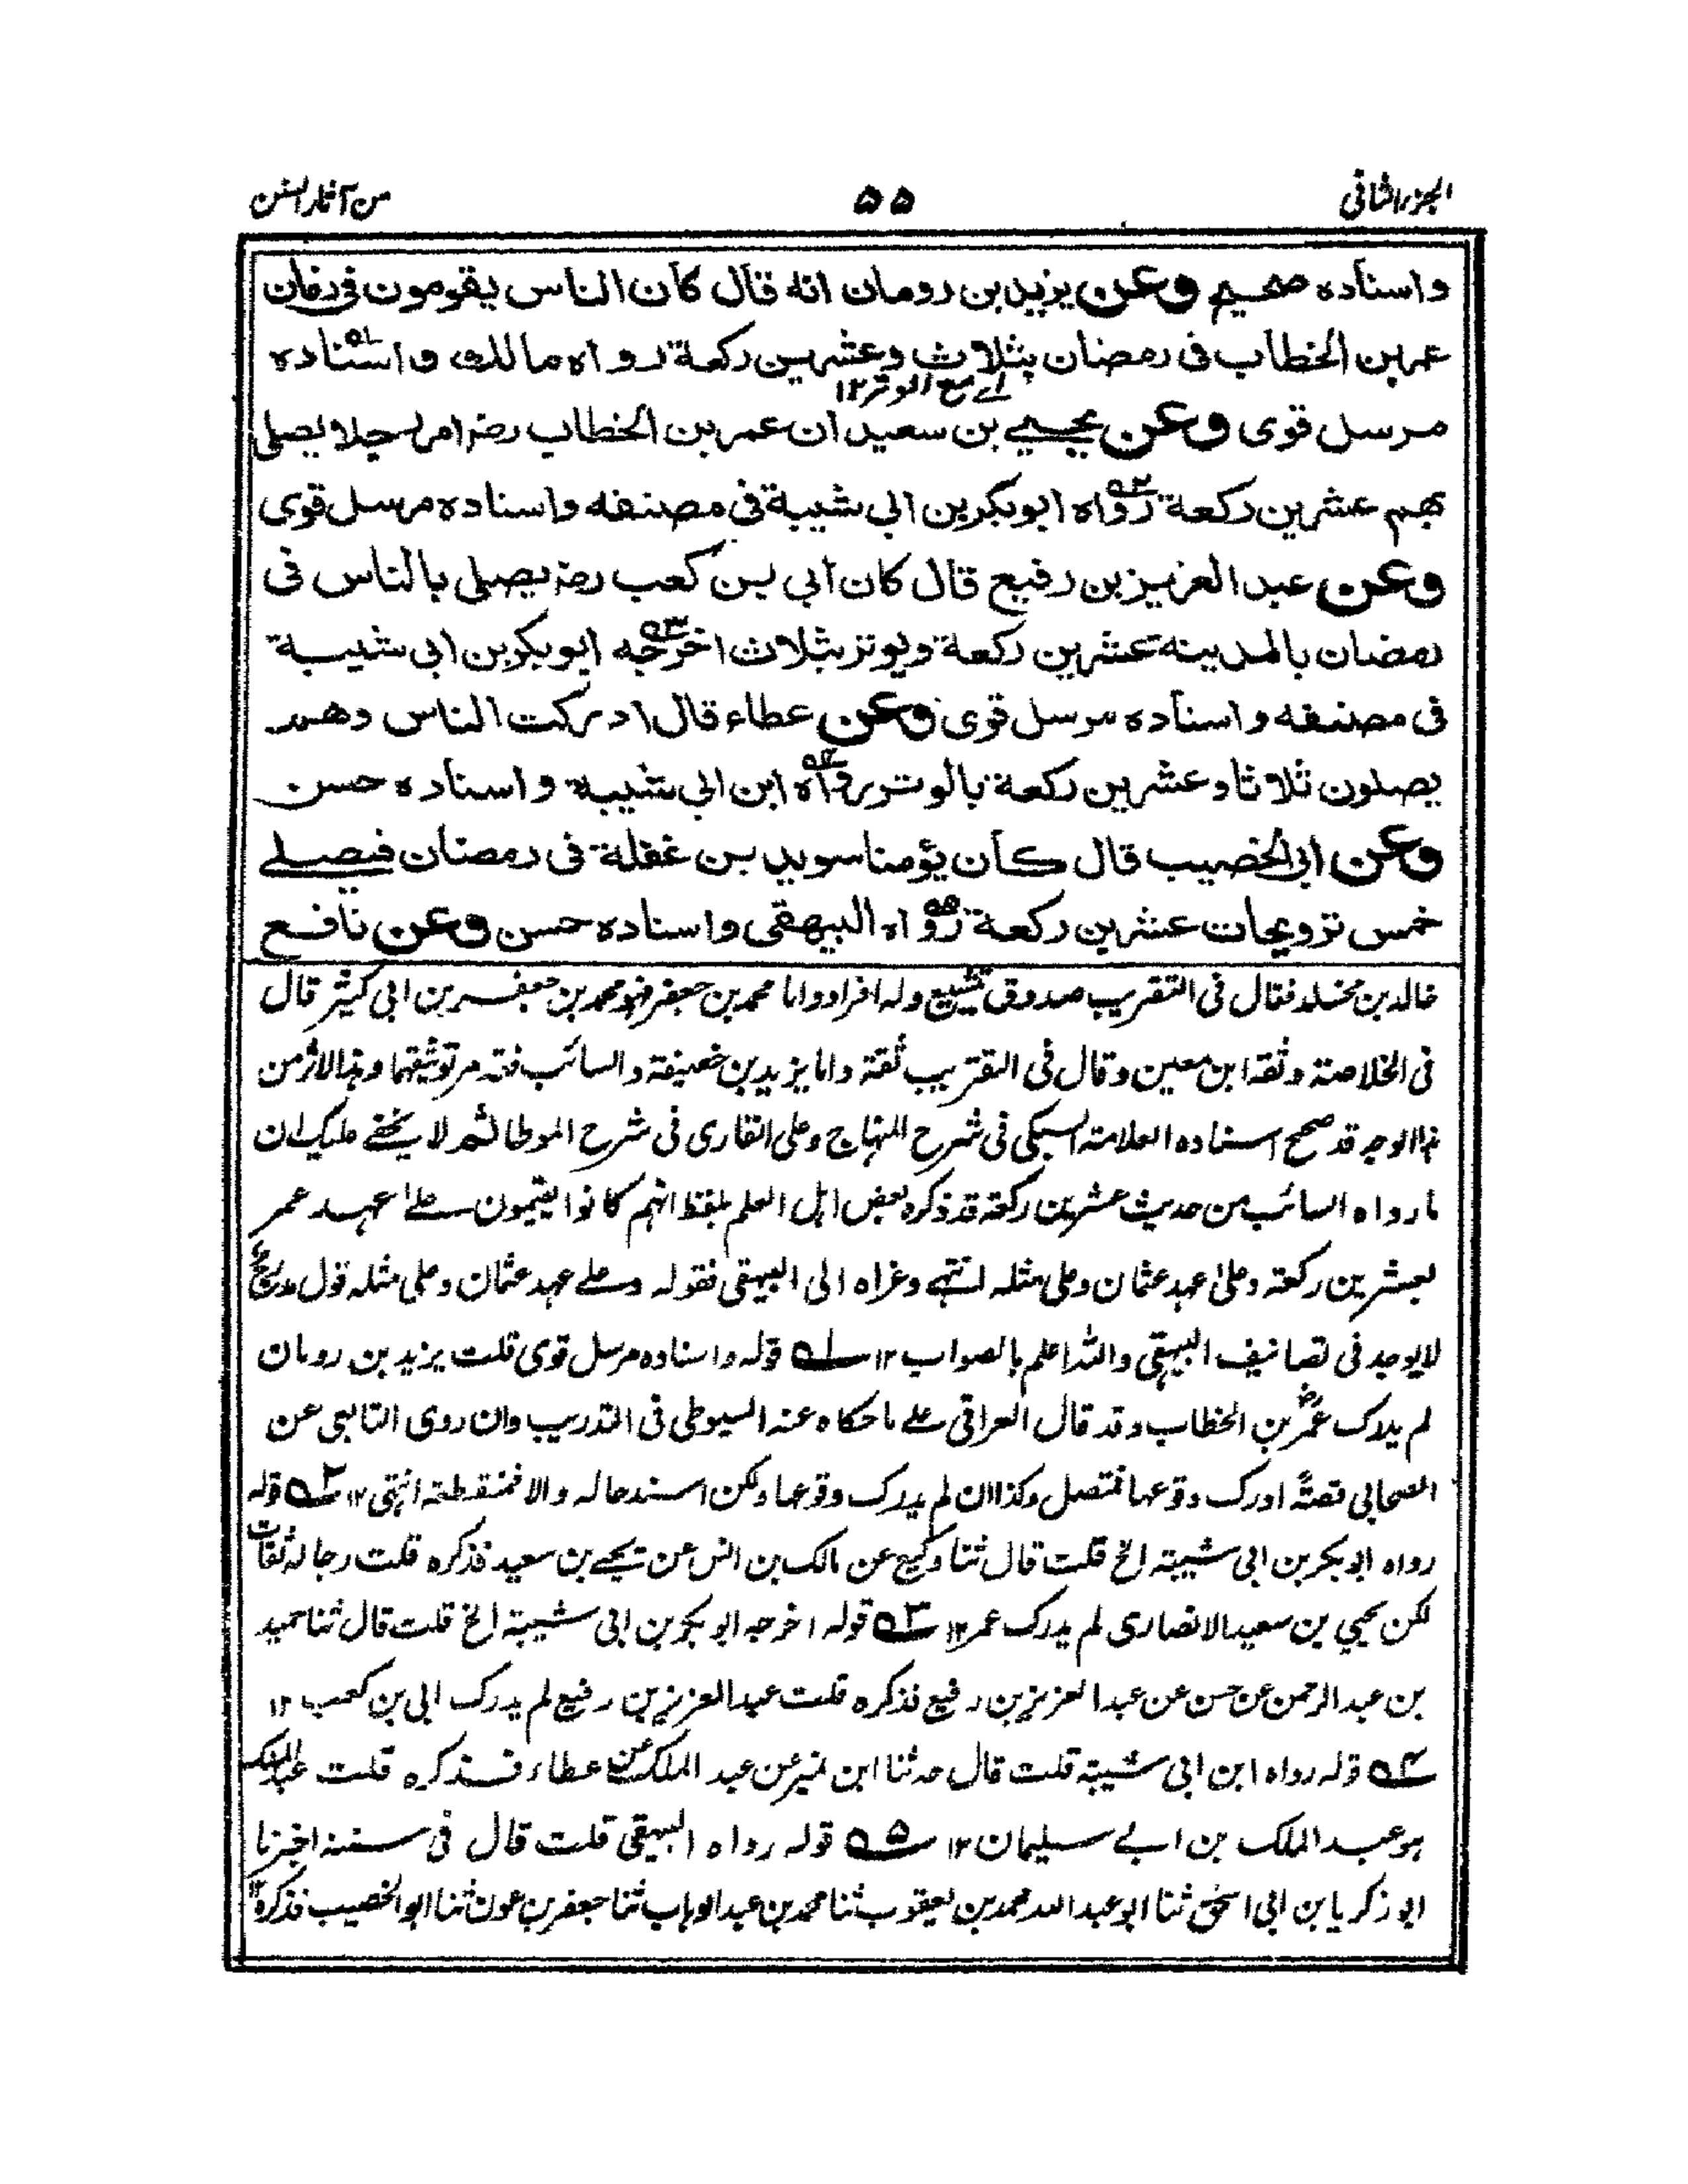 الجزء الثانی
۵۵
من آثار السنن
واسناده صحیح وعن یزید بن رومان انه قال کان الناس یقومون فی زمان
عمر بن الخطاب فی رمضان بثلاث وعشرین رکعة رواه مالك واسناده
اے مع الوتر ۱۲
مرسل قوی وعن یحیی بن سعید ان عمر بن الخطاب رضہ امر رجلا یصلی
بهم عشرین رکعة رواه ابوبکر بن ابی شیبة فی مصنفه واسناده مرسل قوی
وعن عبد العزیز بن رفیع قال کان ابی بن کعب رضہ یصلی بالناس فی
رمضان بالمدینة عشرین رکعة ویوتر بثلاث اخرجه ابوبکر بن ابی شیبة
فی مصنفه واسناده مرسل قوی وعن عطاء قال ادرکت الناس وهم
یصلون ثلاثا وعشرین رکعة بالوتر رواه ابن ابی شیبة واسناده حسن
وعن ابی الخصیب قال کان یؤمنا سوید بن غفلة فی رمضان فیصلے
خمس ترویحات عشرین رکعة رواه البیهقی واسناده حسن وعن نافع
خالد بن مخلد فقال فی التقریب صدوق یتشیع وله افراد واما محمد بن جعفر فہو محمد بن جعفر بن ابی کثیر قال
فی الخلاصة وثقه ابن معین وقال فی التقریب ثقة واما یزید بن خصیفة والسائب فقد مر توثیقہما وہذا الاثر من
ہذا الوجہ قد صحح اسناده العلامة السبکی فی شرح المنہاج وعلی القاری فی شرح الموطا ثم لا یخفے علیک ان
ما رواه السائب من حدیث عشرین رکعة قد ذکره بعض اہل العلم بلفظ انہم کانوا یقیمون علے عہد عمر
بعشرین رکعة وعلی عہد عثمان وعلی مثلہ انتہے وعزاه الی البیہقی فقولہ وعلے عہد عثمان وعلی مثلہ قول مدرج
لا یوجد فی تصانیف البیہقی واللہ اعلم بالصواب ۱۲ ۵۱ قولہ واسناده مرسل قوی قلت یزید بن رومان
لم یدرک عمر بن الخطاب وقد قال العراقی علے ما حکاه عنہ السیوطی فی التدریب وان روی التابعی عن
الصحابی قصة ادرک وقوعہا فمتصل وکذا ان لم یدرک وقوعہا ولکن اسندہا لہ والا فمنقطعة انتہی ۱۲ ۵۲ قولہ
رواه ابو بکر بن ابی شیبة الخ قلت قال ثنا وکیع عن مالک بن انس عن یحیے بن سعید فذکره قلت رجالہ ثقات
لکن یحیی بن سعید الانصاری لم یدرک عمر ۱۲ ۵۳ قولہ اخرجہ ابو بکر بن ابی شیبة الخ قلت قال ثنا حمید
بن عبد الرحمن عن حسن عن عبد العزیز بن رفیع فذکره قلت عبد العزیز بن رفیع لم یدرک ابی بن کعب ۱۲
۵۴ قولہ رواه ابن ابی شیبة قلت قال حدثنا ابن نمیر عن عبد الملک عن عطاء فذکره قلت عبد الملک
ہو عبد الملک بن ابے سلیمان ۱۲ ۵۵ قولہ رواه البیہقی قلت قال فی سننہ اخبرنا
ابو زکریا بن ابی اسحٰق ثنا ابو عبد اللہ محمد بن یعقوب ثنا محمد بن عبد الوہاب ثنا جعفر بن عون ثنا ابو الخصیب فذکره ۱۲